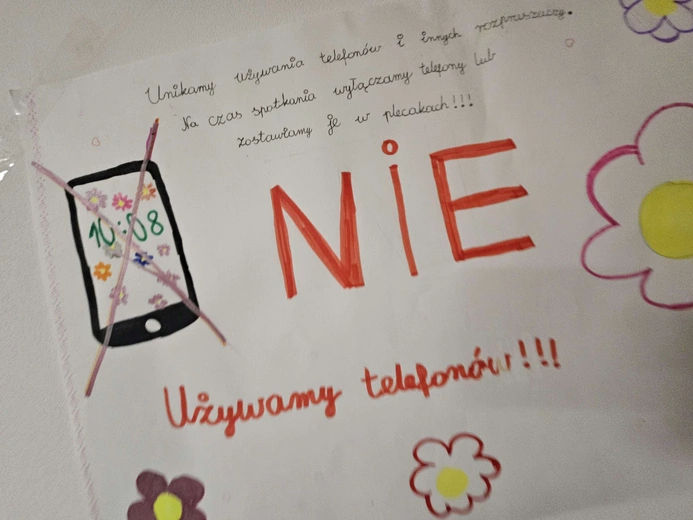 Unikamy używania telefonów i innych rozpraszaczy.
Na czas spotkania wyłączamy telefony lub
zostawiamy je w plecakach!!!
10:08
NiE
Używamy telefonów!!!